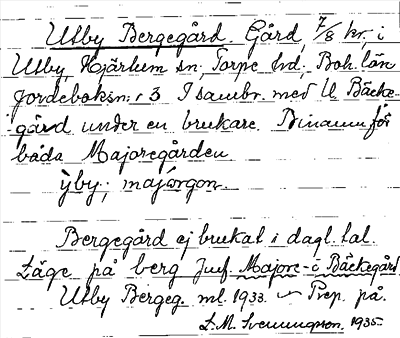 Utby Bergegård. Gård, 7/8 kr, i
Utby, Hjärtum sn, Torpe hd, Boh. län
Jordeboksn:r 3 I sambr. med U Bäcke-
gård under en brukare. Binamn för
båda Majoregården
ỳby; majórgon.
Bergegård ej brukat i dagl. tal.
Läge på berg Jmf. Majore- o Bäckegård
Utby Bergeg. ml. 1933. Prep. på.
L. M. Svenungsson. 1935.